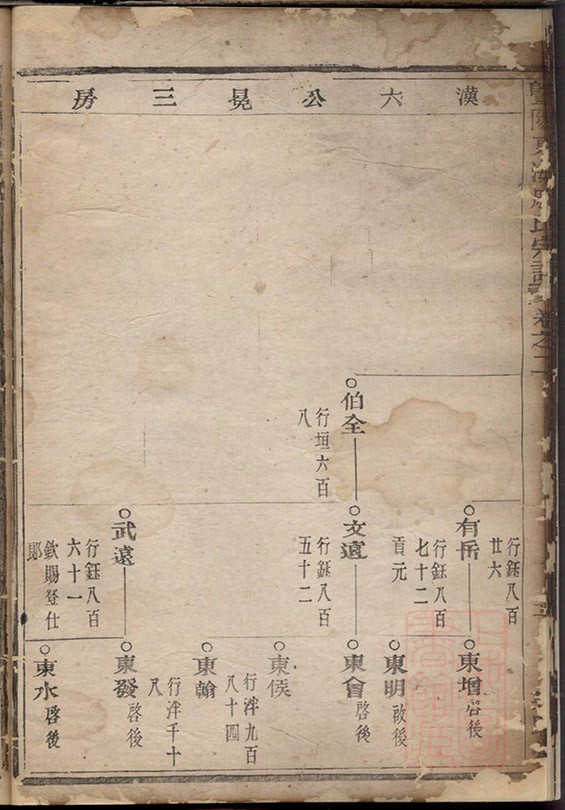 漢六公晃三房
暨陽東
宗譜卷之二
伯全
行垣六百
八
有岳
行鈺八百
廿六
文遠
行鈺八百
七十二
貢元
行鈺八百
五十二
武遠
行鈺八百
六十一
欽賜登仕
郎
東增
啓後
東明
啓後
東會
啓後
東侯
行泮九百
八十四
東翰
行泮千十
八
東發
啓後
東水
啓後